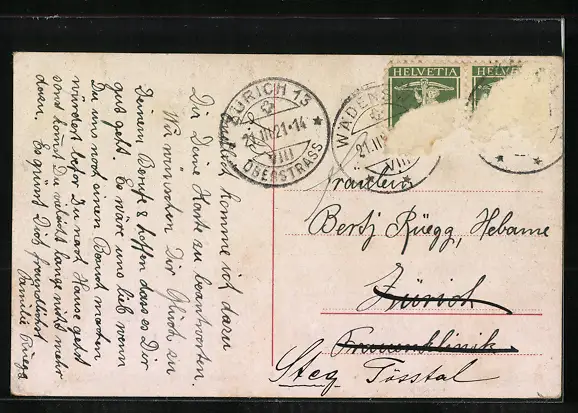 Endlich komme ich dazu
Dir Deine Karte zu beantworten.
Wir wünschen Dir Glück zu
Deinem Berufe & hoffen dass es Dir
gut geht. Es wäre uns lieb wenn
Du uns noch einen Besuch machen
würdest bevor Du nach Hause gehst
sonst kommst Du vieleicht lange nicht mehr
davon. Es grüsst Dich freundlichst
Familie Rüegg
ZÜRICH 13
21.III.21.14
VIII
OBERSTRASS
WÄDENS
21.III
VIII
HELVETIA
HELVETIA
Fräulein
Bertj Rüegg, Hebamme
Zürich
Frauenklinik
Steg Tösstal